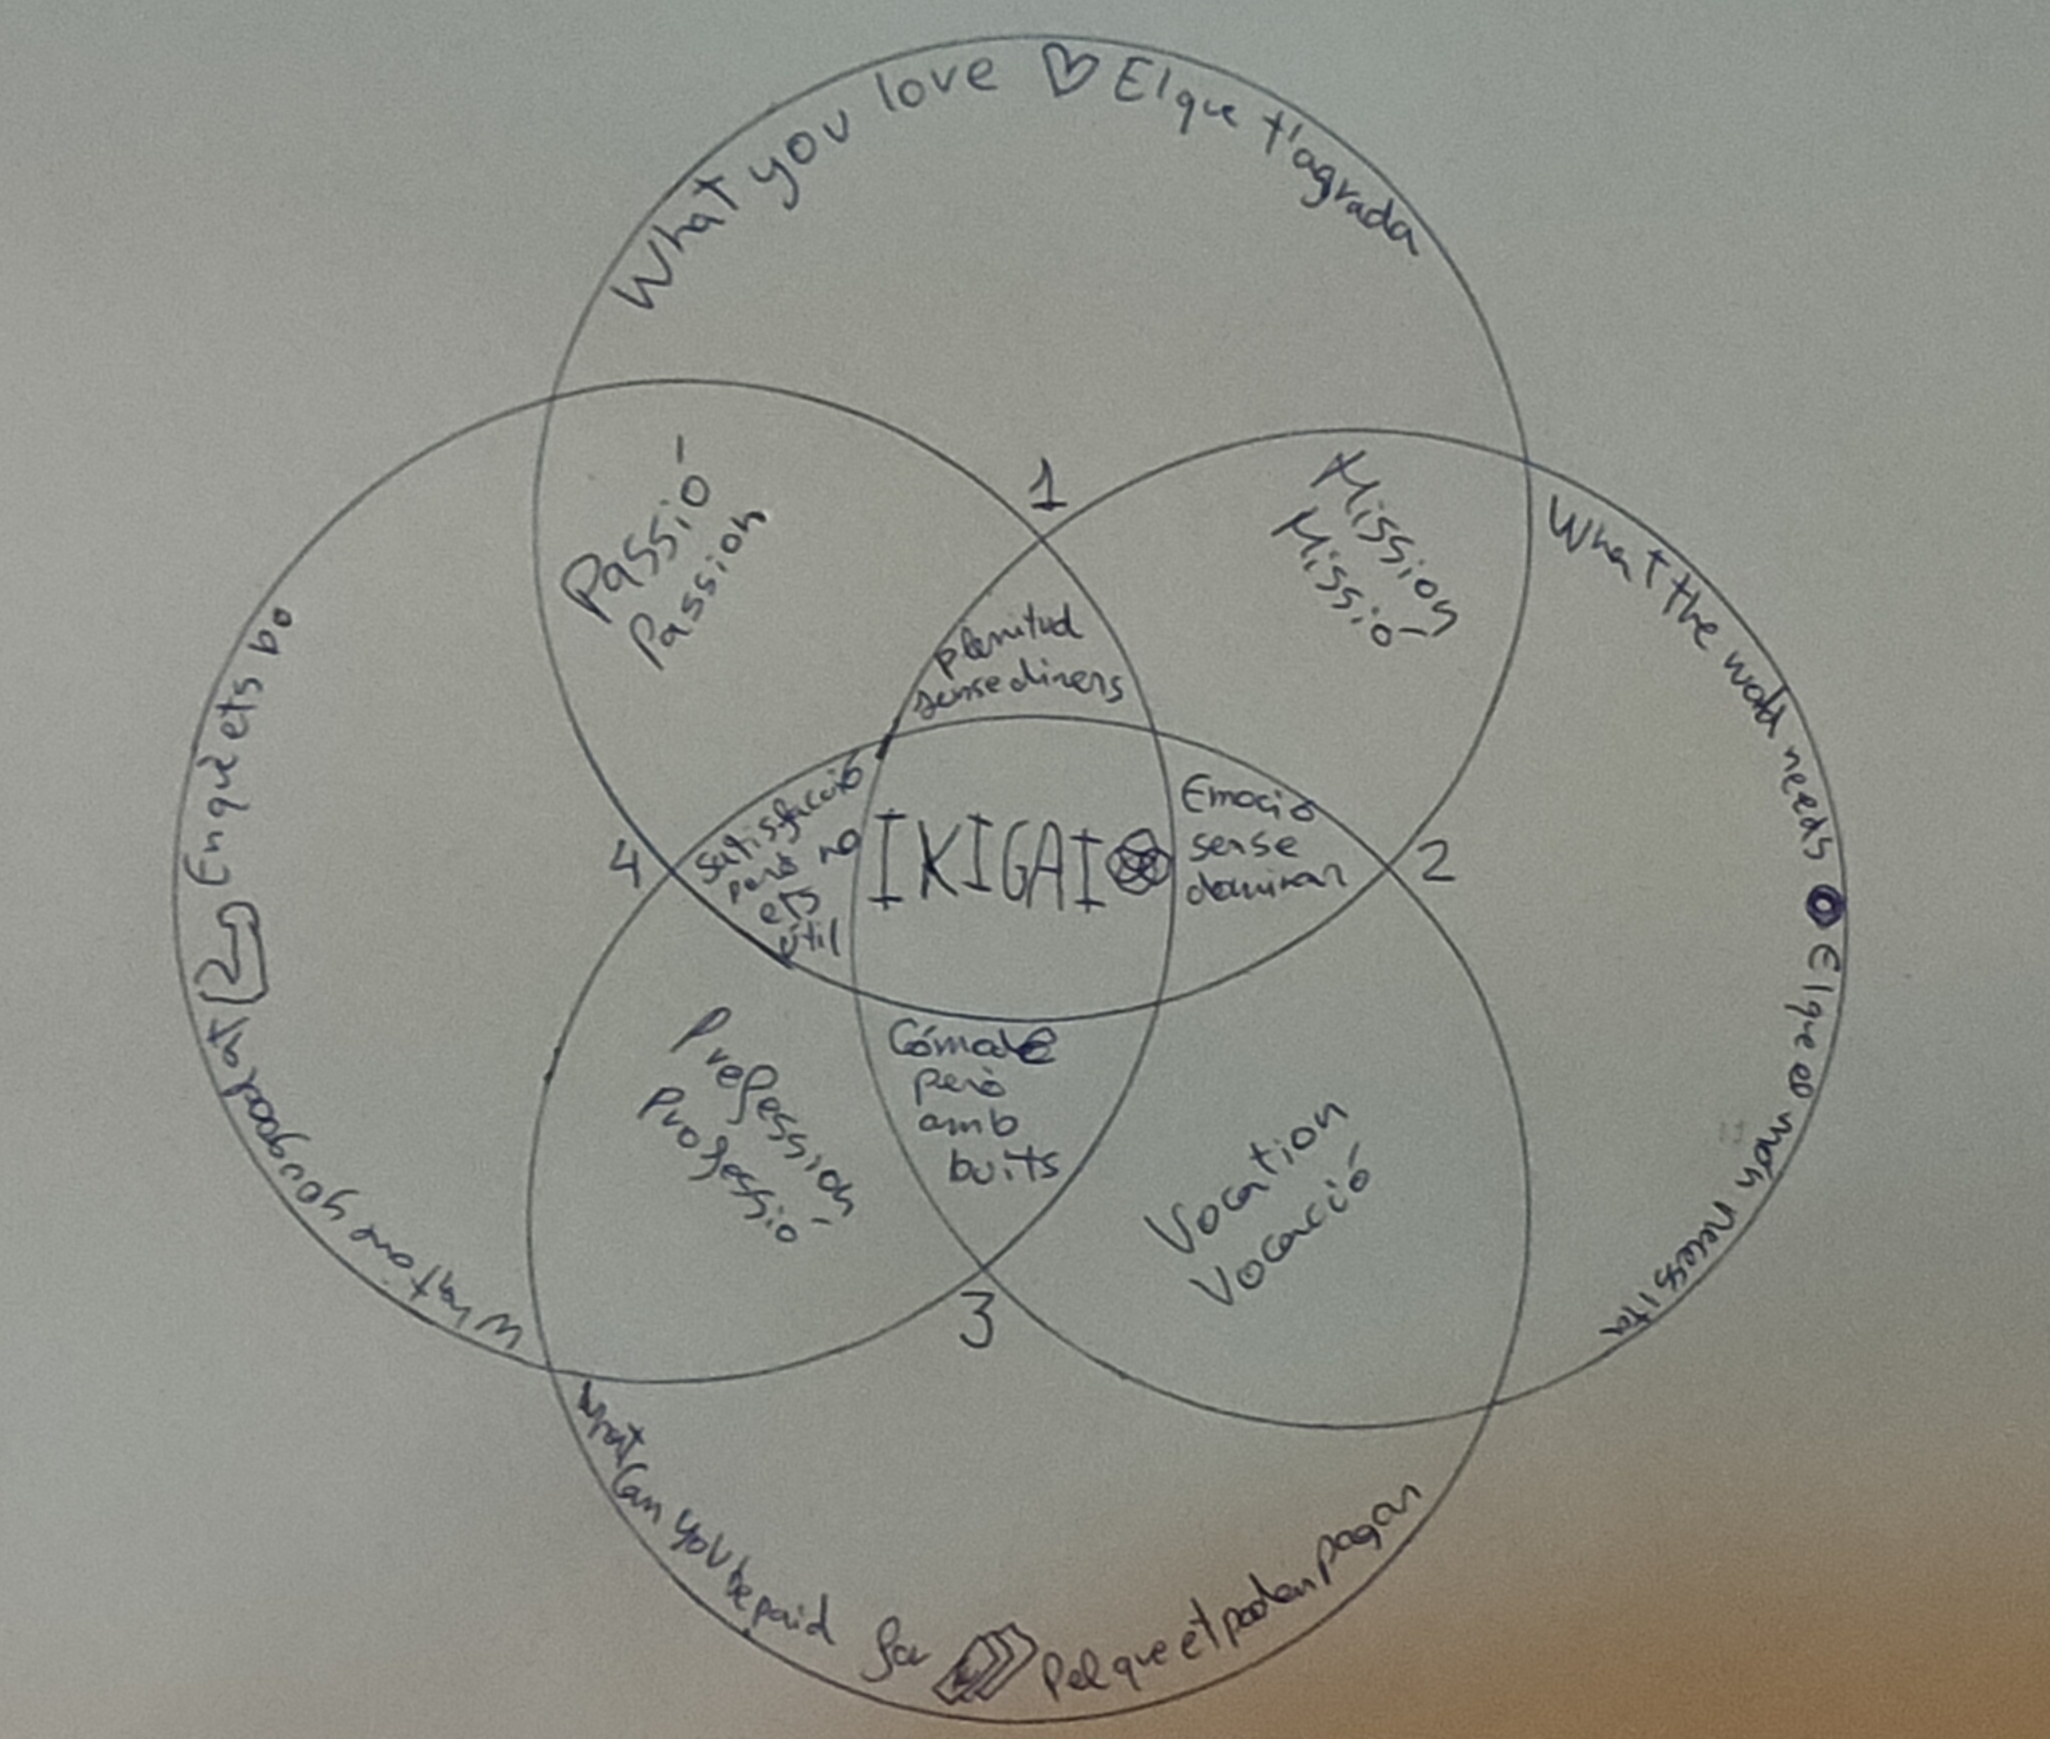 What you love ♡ El que t'agrada
Passió
Passion
1
Mission
Missió
What the world needs
El que el món necessita
plenitud
sense diners
En què ets bo
What are you good at
4
Satisfacció
però no
ets
útil
IKIGAI
Emoció
sense
dominar
2
Còmode
però
amb
buits
Profession
Professió
Vocation
Vocació
3
What Can you be paid for
Pel que et poden pagar